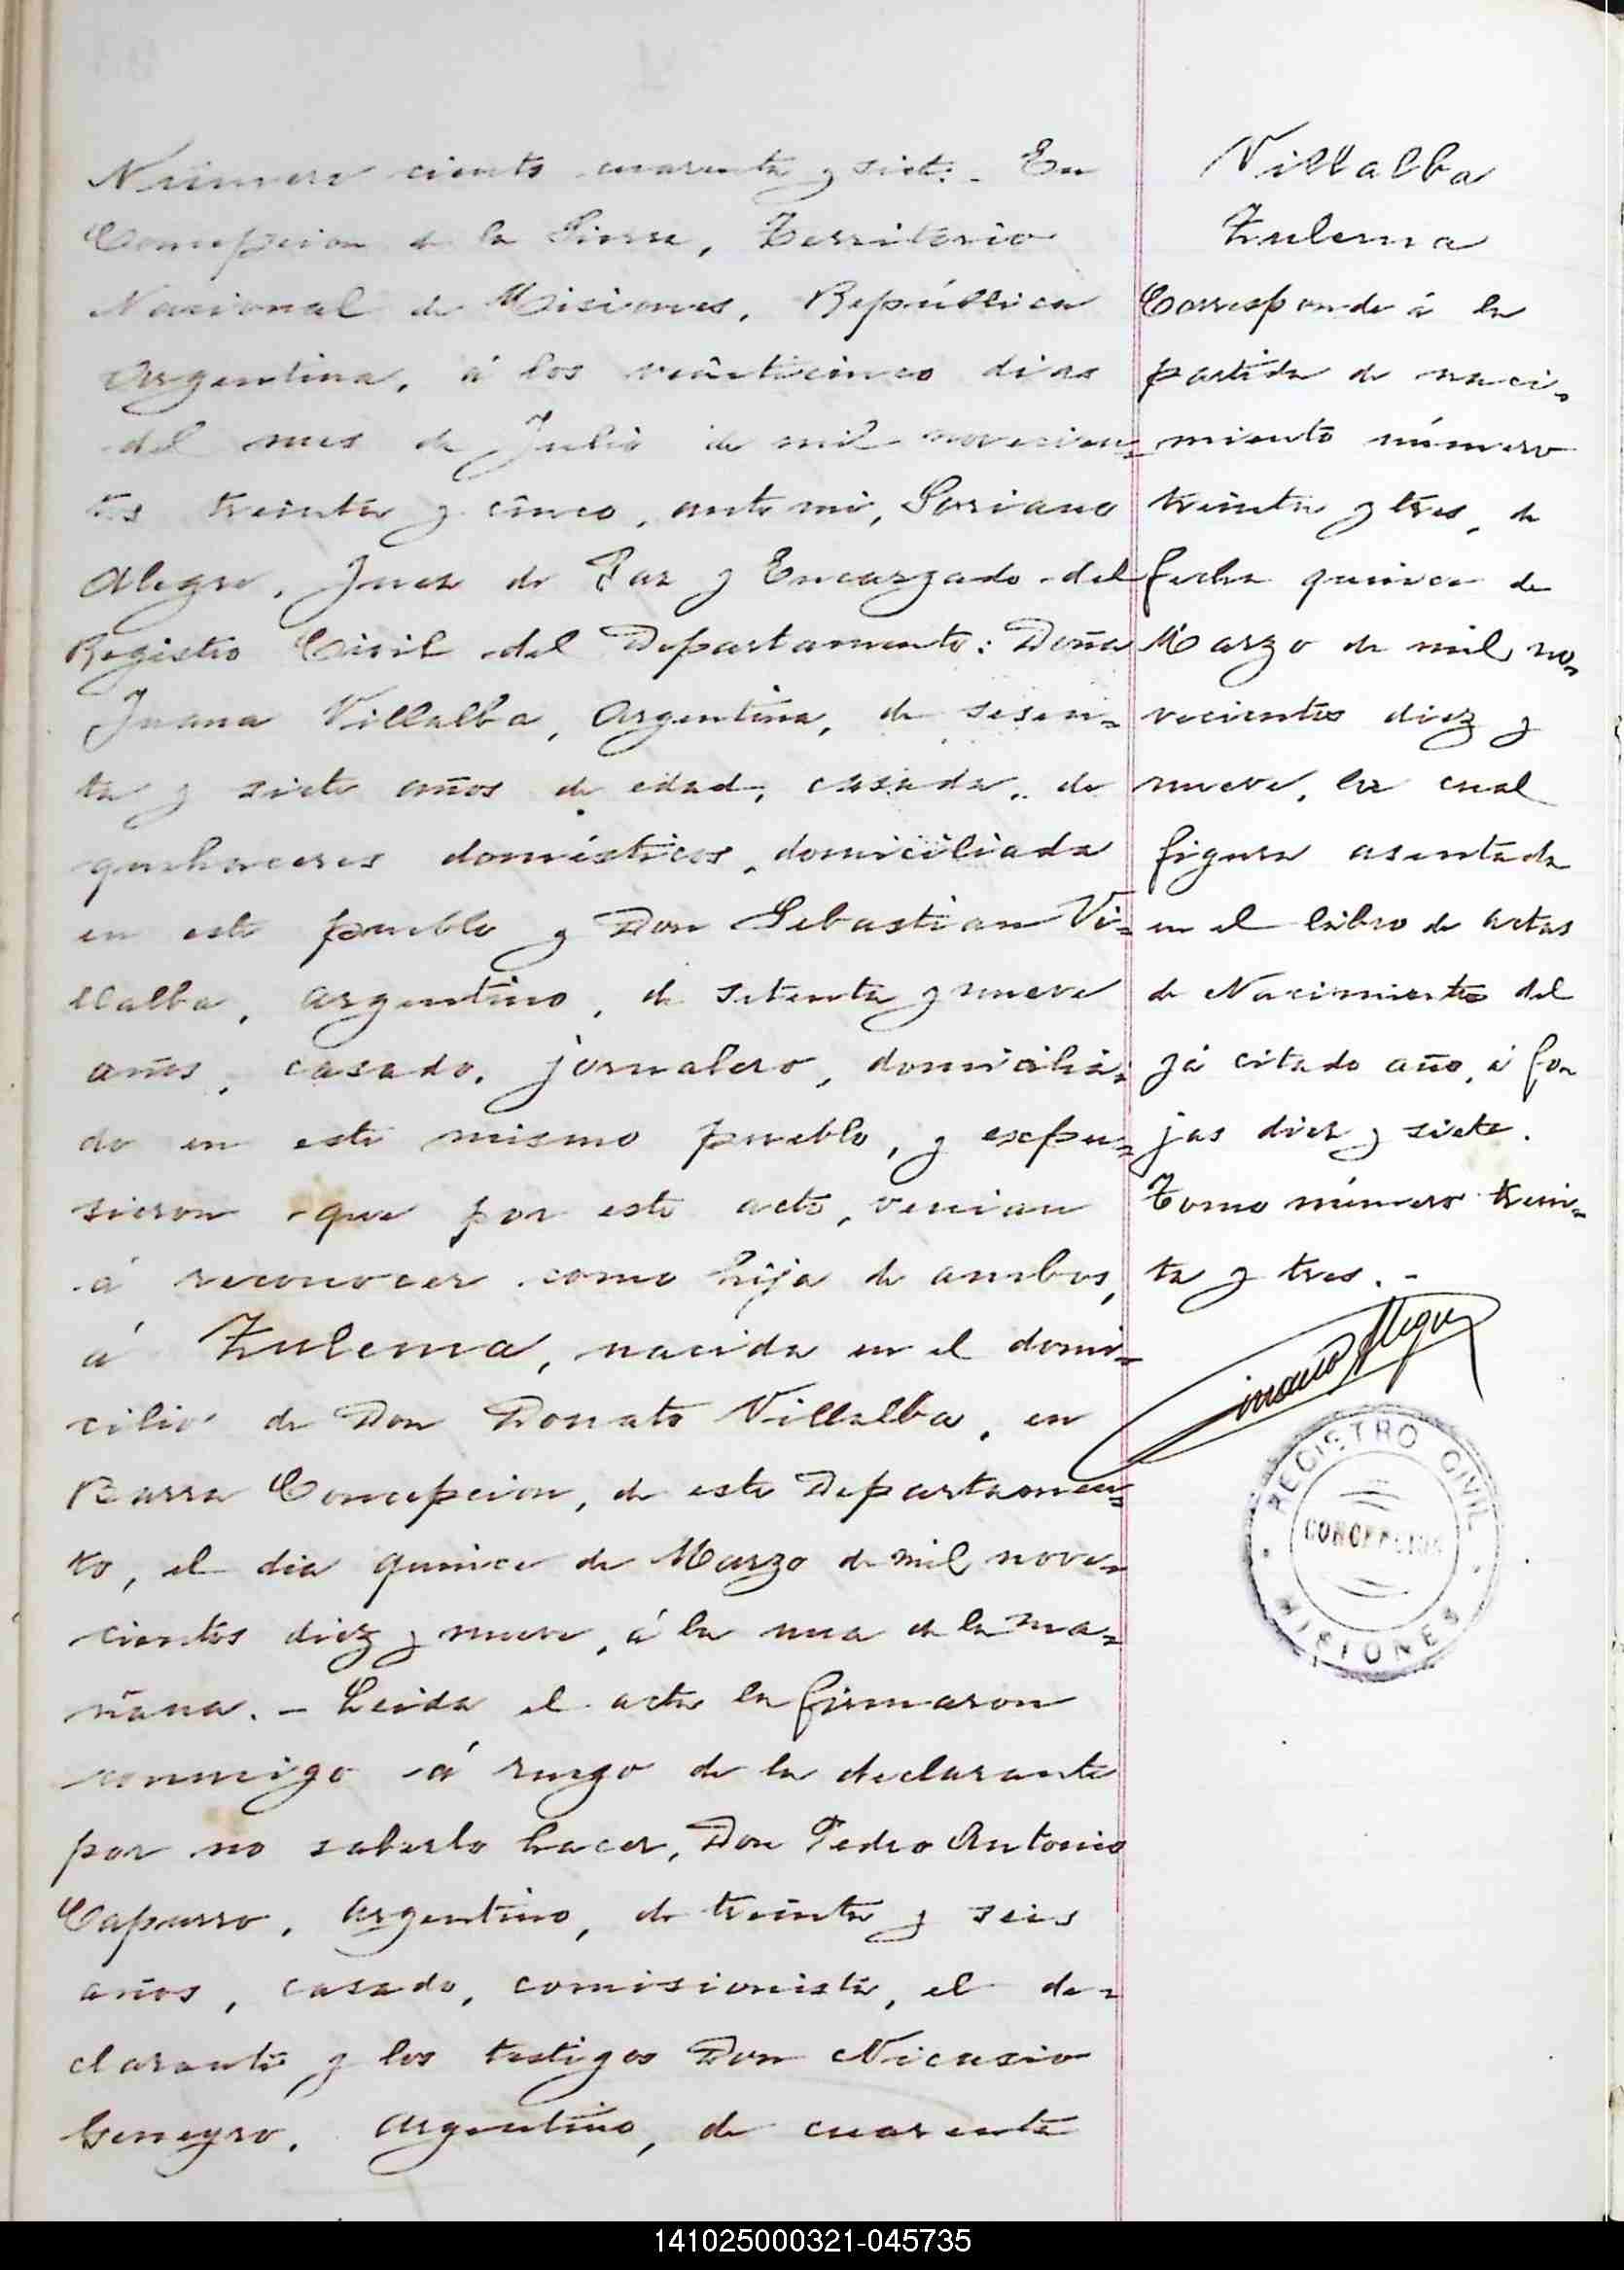 Número ciento cuarenta y siete. - En
Concepcion de la Sierra, Territorio
Nacional de Misiones, República
Argentina, á los veinticinco dias
del mes de Julio de mil novecien=
tos treinta y cinco, ante mi, Soriano
Alegre, Juez de Paz y Encargado del
Registro Civil del Departamento: Doña
Juana Villalba, Argentina, de sesen=
ta y siete años de edad, casada, de
quehaceres domésticos, domiciliada
en este pueblo y Don Sebastian Vi=
llalba, argentino, de setenta y nueve
años, casado, jornalero, domicilia=
do en este mismo pueblo, y expu=
sieron que por este acto, venian
á reconocer como hija de ambos,
á Zulema, nacida en el domi=
cilio de Don Donato Villalba, en
Barra Concepcion, de este Departamen=
to, el dia quince de Marzo de mil nove=
cientos diez y nueve, á la una de la ma=
ñana. - Leida el acta la firmaron
conmigo á ruego de la declarante
por no saberlo hacer, Don Pedro Antonio
Capurro, argentino, de treinta y seis
años, casado, comisionista, el de=
clarante y los testigos Don Nicasio
argentino, de cuarenta
Villalba
Zulema
Corresponde á la
partida de naci=
miento número
treinta y tres, de
fecha quince de
Marzo de mil no=
vecientos diez y
nueve, la cual
figura asentada
en el libro de actas
de Nacimientos del
yá citado año, á fo=
jas diez y siete.
Tomo número trein=
ta y tres. -
REGISTRO CIVIL
CONCEPCION
MISIONES
141025000321-045735